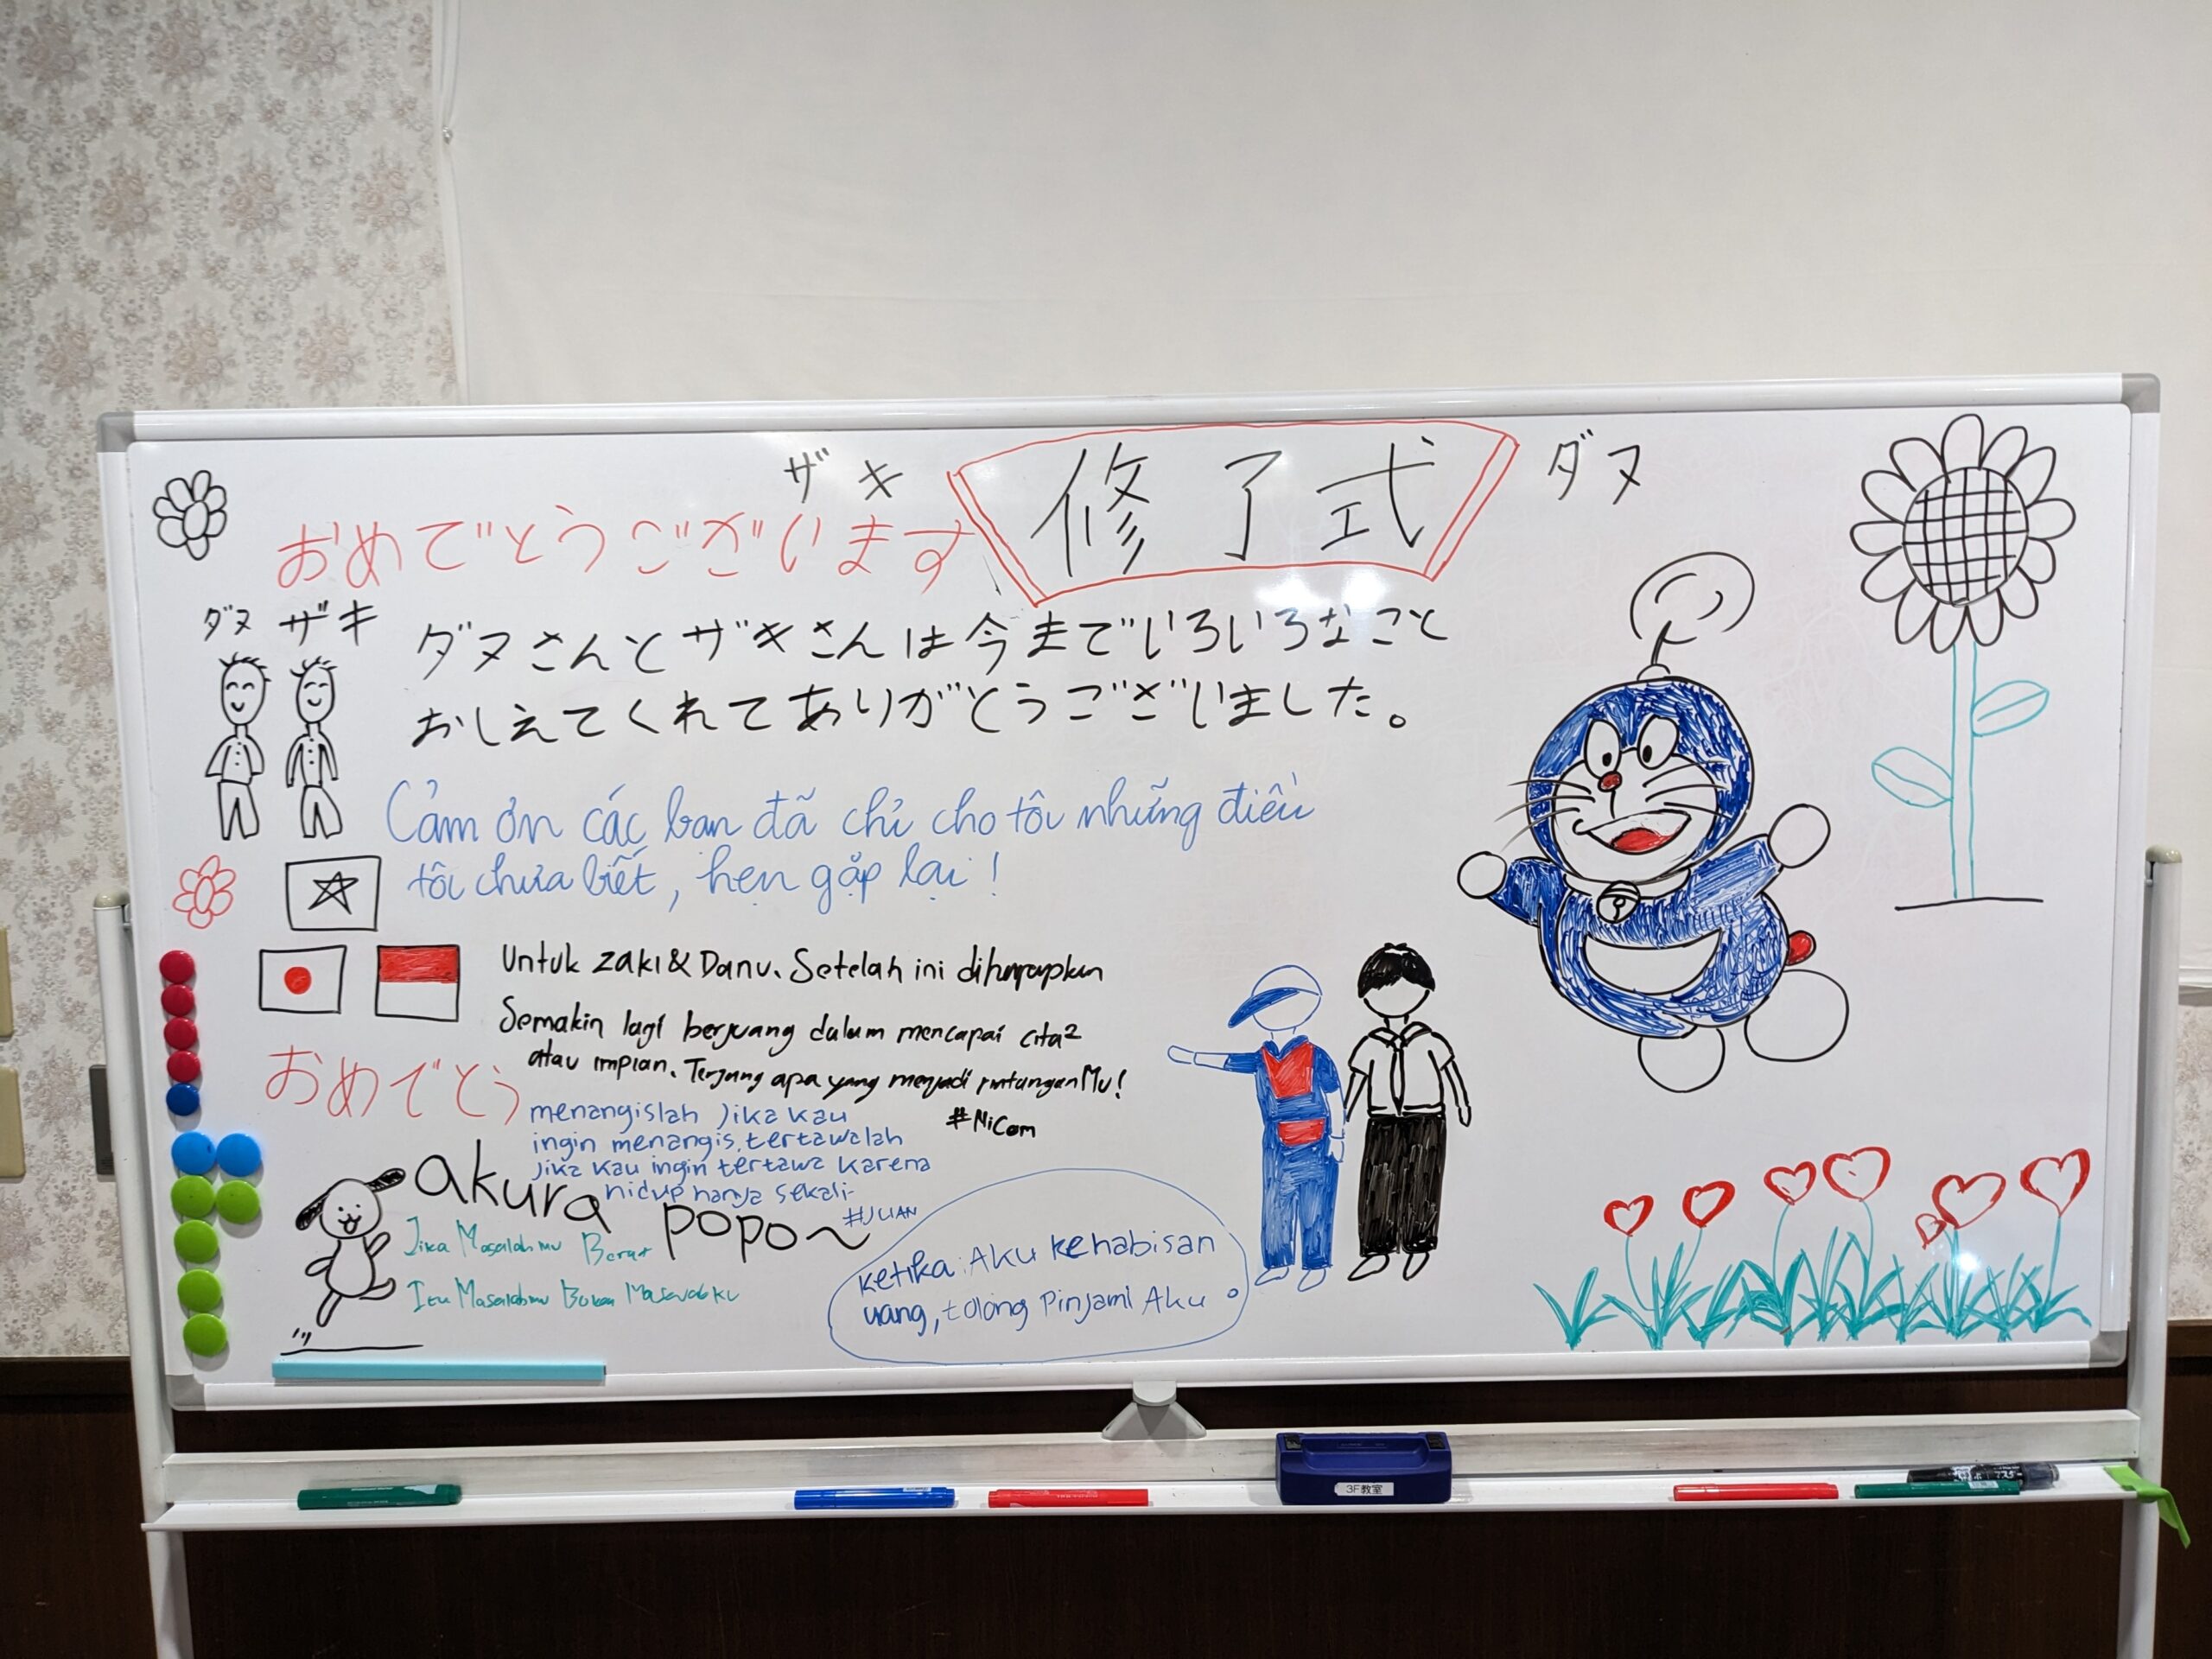 ザキ
修了式
ダヌ
おめでとうございます
ダヌ ザキ
ダヌさんとザキさんは今までいろいろなこと
おしえてくれてありがとうございました。
Cảm ơn các bạn đã chỉ cho tôi những điều
tôi chưa biết, hẹn gặp lại!
Untuk zaki & Danu. Setelah ini diharapkan
Semakin lagi berjuang dalam mencapai cita2
atau impian. Terjang apa yang menjadi rintanganMu!
#NiCom
おめでとう
menangislah jika kau
ingin menangis, tertawalah
jika kau ingin tertawa karena
hidup hanya sekali-
#JULIAN
akura popo~
Jika Masalahmu Berat
Itu Masalahmu Bukan Masalahku
ketika Aku kehabisan
uang, tolong Pinjami Aku.
3F教室